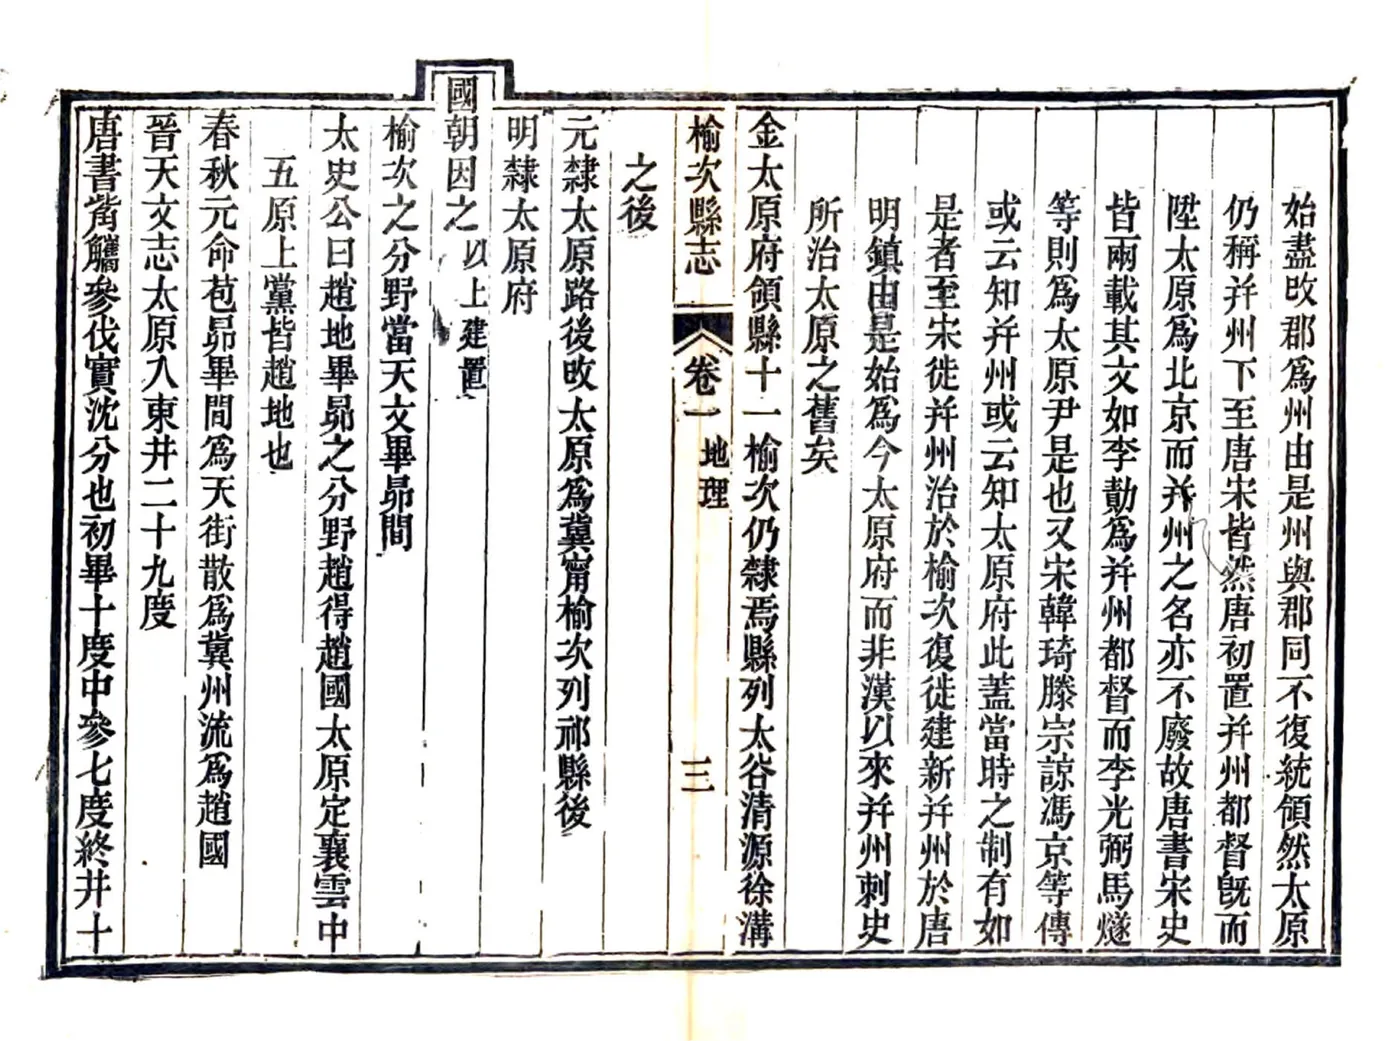 始盡改郡爲州由是州與郡同不復統領然太原
仍稱并州下至唐宋皆然唐初置并州都督旣而
陞太原爲北京而并州之名亦不廢故唐書宋史
皆兩載其文如李勣爲并州都督而李光弼馬燧
等則爲太原尹是也又宋韓琦滕宗諒馮京等傳
或云知并州或云知太原府此蓋當時之制有如
是者至宋徙并州治於榆次復徙建新并州於唐
明鎮由是始爲今太原府而非漢以來并州刺史
所治太原之舊矣
金太原府領縣十一榆次仍隸焉縣列太谷清源徐溝
榆次縣志 卷一 地理 三
之後
元隸太原路後改太原爲冀甯榆次列祁縣後
明隸太原府
國朝因之 以上建置
榆次之分野當天文畢昴間
太史公曰趙地畢昴之分野趙得趙國太原定襄雲中
五原上黨皆趙地也
春秋元命苞昴畢間爲天街散爲冀州流爲趙國
晉天文志太原入東井二十九度
唐書觜觿參伐實沈分也初畢十度中參七度終井十